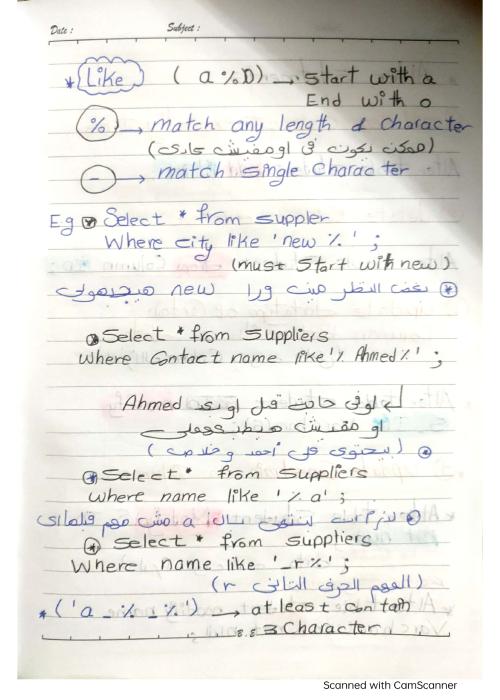 Date : Subject :
* Like ( a % o ) → Start with a
End with o
% → match any length of character
(ممكن يكون فى او مفيش عادى)
- → match single character
Eg * Select * from suppler
Where city like 'new %' ;
(must Start with new)
* بغض النظر مين ورا new هيجيهولى
* Select * from Suppliers
where Contact name like '% Ahmed %' ;
لو فى حاجة قبل او بعد Ahmed
او مفيش هيطبعهملى
(يحتوى على أحمد وخلاص)
* Select * from Suppliers
where name like '% a' ;
لازم تنتهى بال a مش مهم قبلها اى
* Select * from suppliers
Where name like '_r %' ;
(المهم الحرف التانى r)
* ('a _ % _ %') → at least contain
3 Character
Scanned with CamScanner